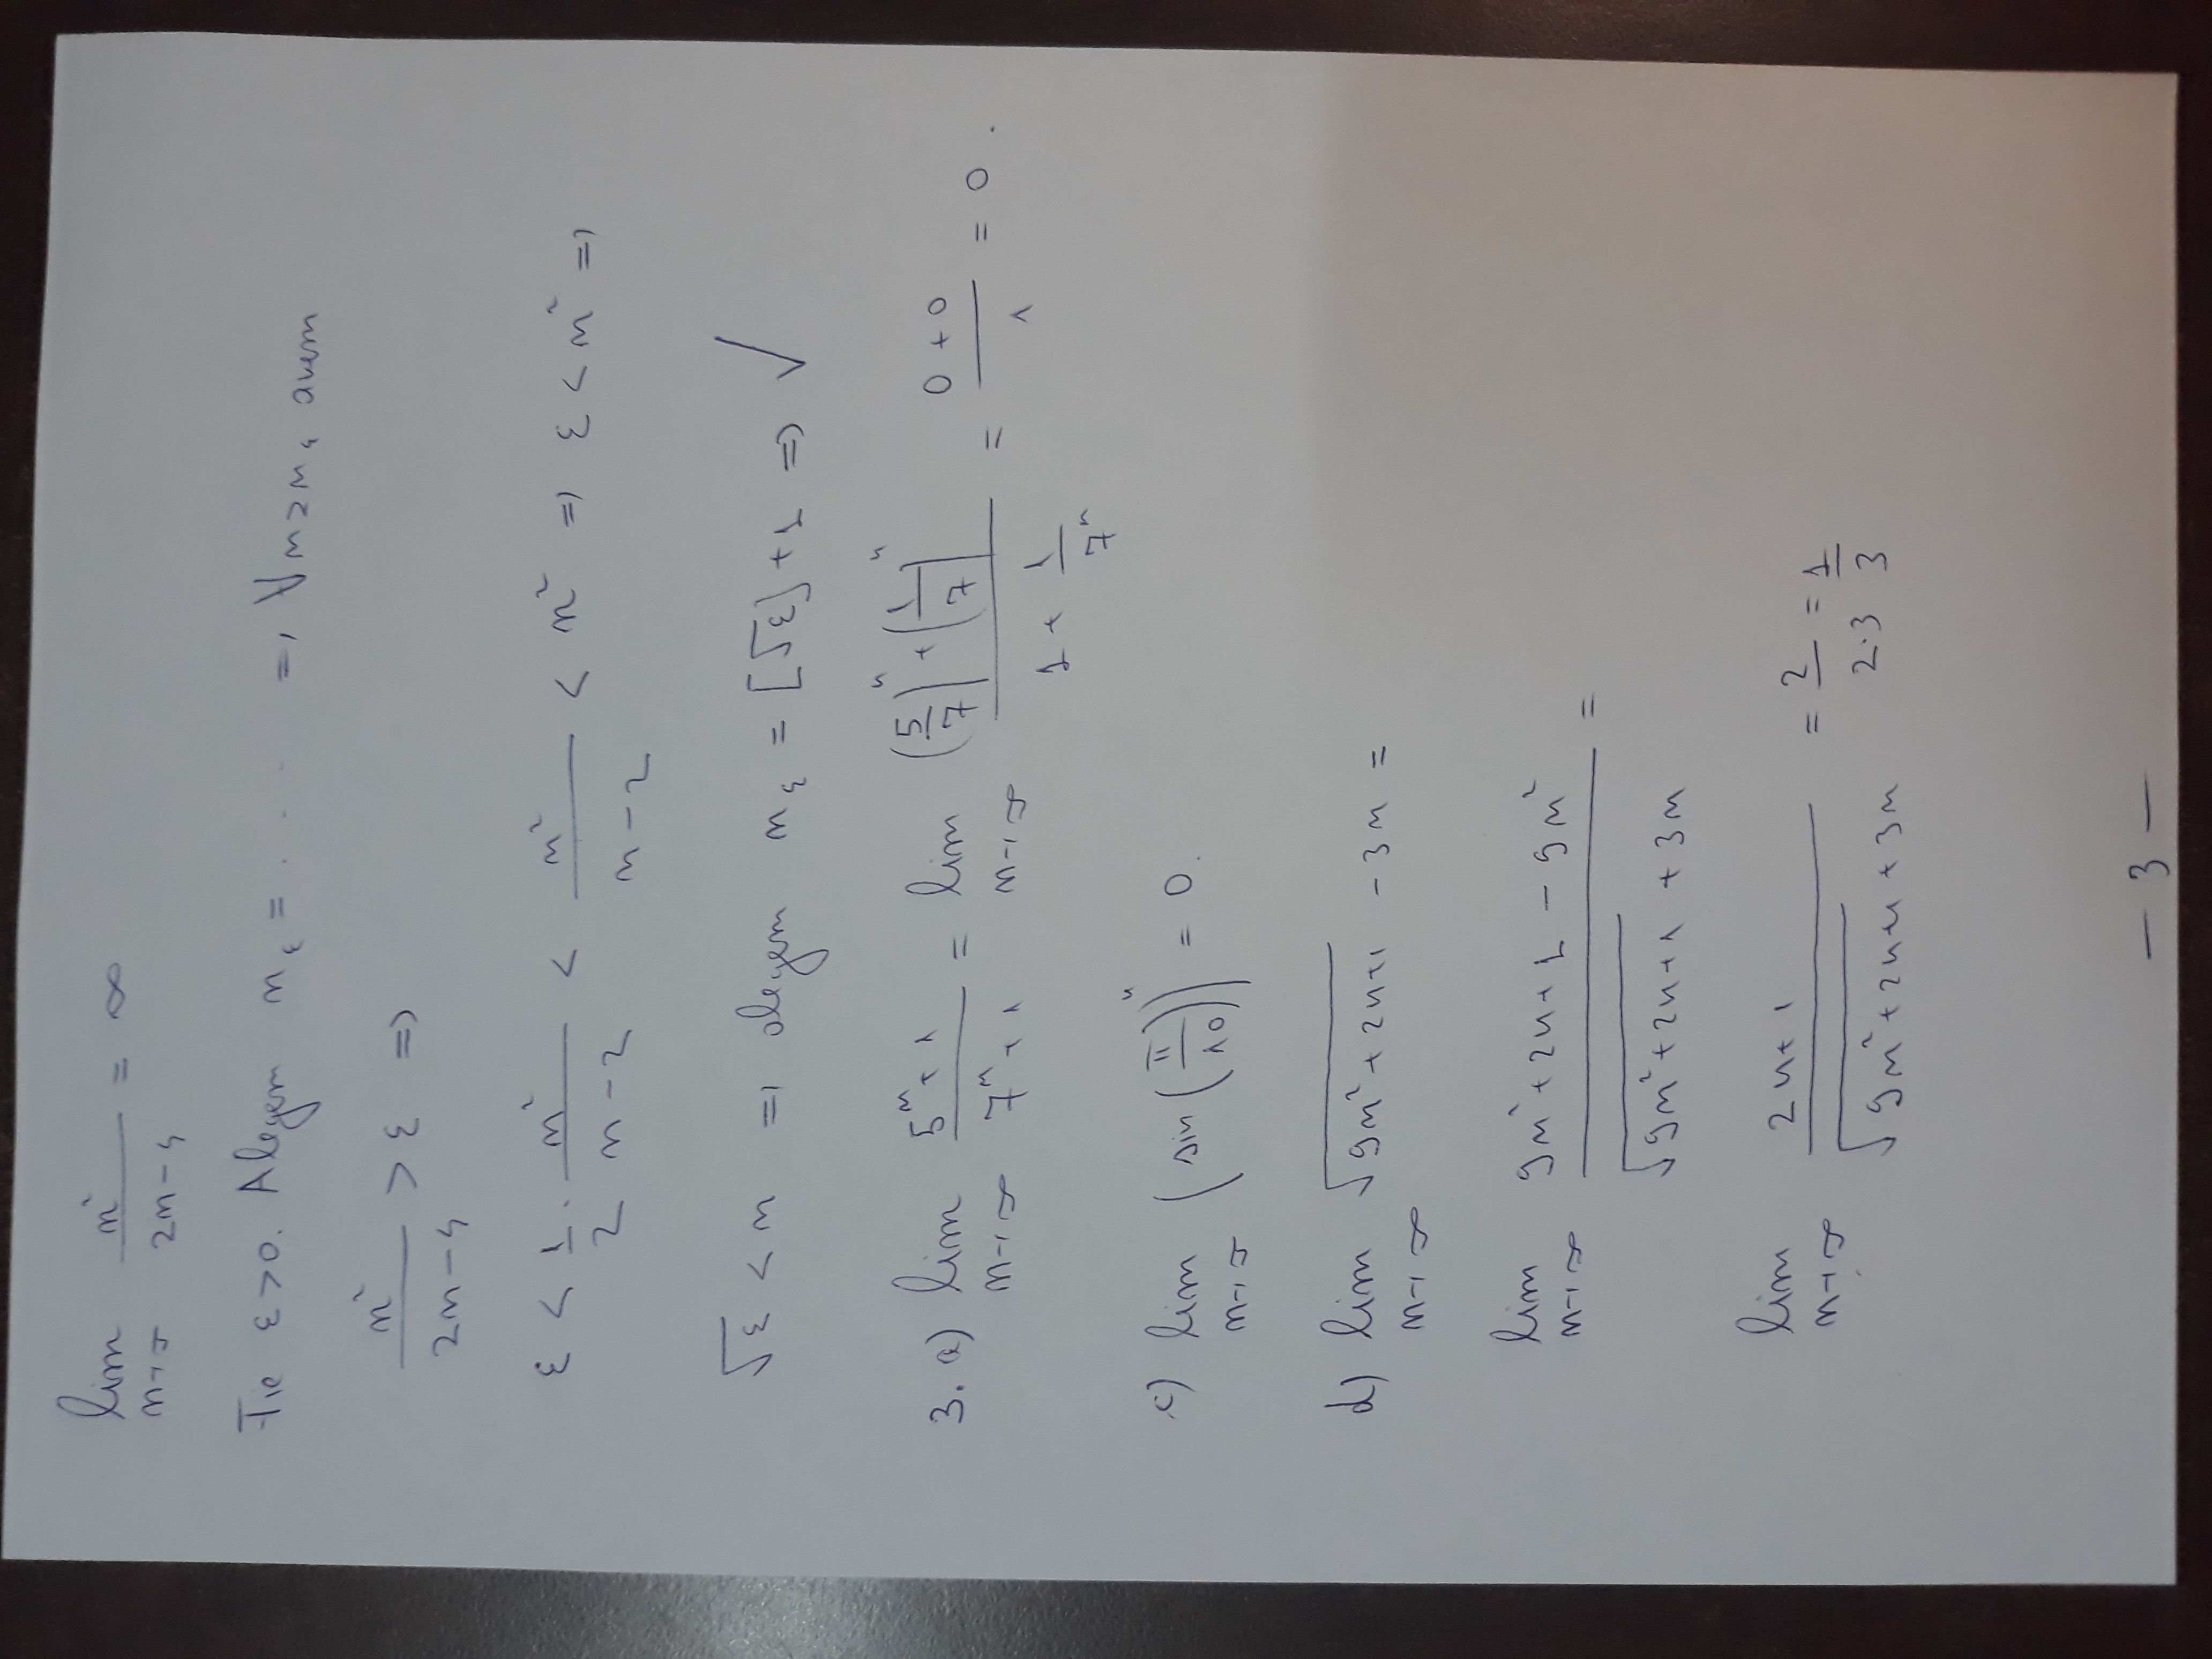 lim n→∞ n²/(2n-4) = ∞
Fie ε>0. Alegem n_ε = . . . . => ∀n≥n_ε avem
n²/(2n-4) > ε =>
ε < 1/2 · n²/(n-2) < n²/(n-2) < n² => ε < n² =>
√ε < n => alegem n_ε = [√ε]+1 => √
3. a) lim n→∞ (5ⁿ+1)/(7ⁿ+1) = lim n→∞ ((5/7)ⁿ + (1/7)ⁿ)/(1 + 1/7ⁿ) = (0+0)/1 = 0.
c) lim n→∞ (sin(π/10))ⁿ = 0.
d) lim n→∞ √(9n²+2n+1) - 3n =
lim n→∞ (9n²+2n+1 - 9n²)/(√(9n²+2n+1) + 3n) =
lim n→∞ (2n+1)/(√(9n²+2n+1) + 3n) = 2/(2·3) = 1/3
— 3 —